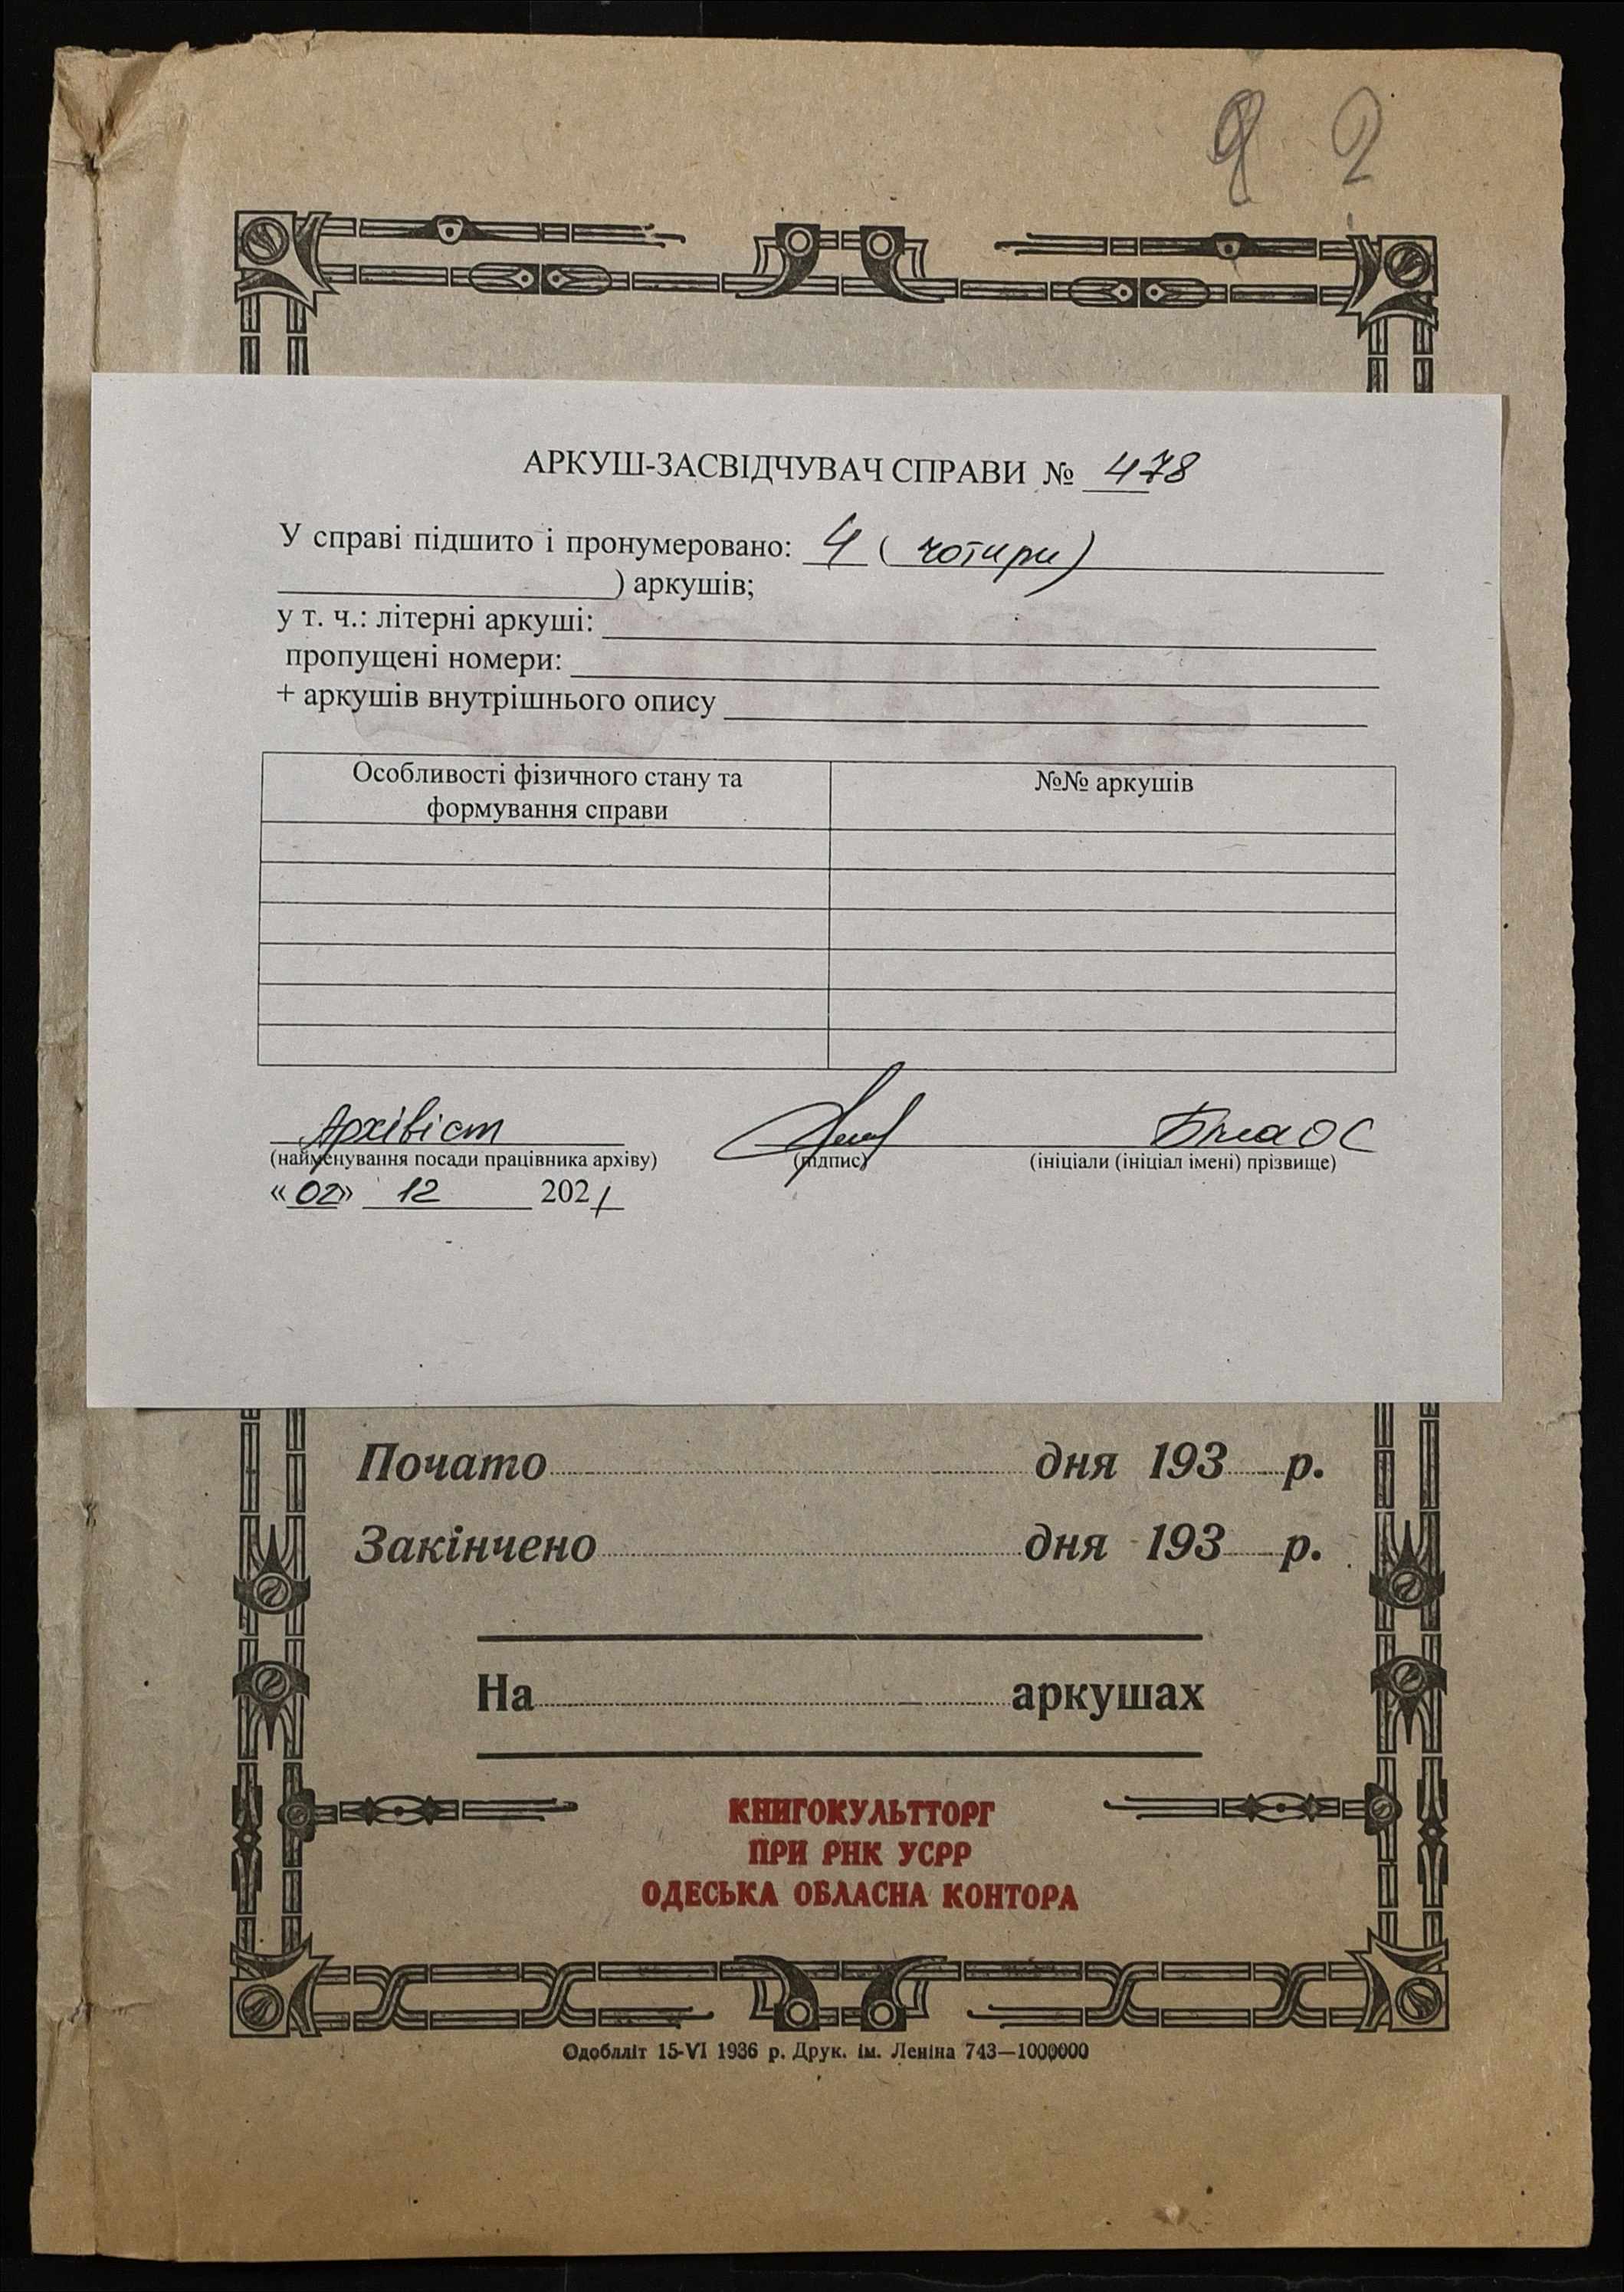 2
АРКУШ-ЗАСВІДЧУВАЧ СПРАВИ № 478
У справі підшито і пронумеровано: 4 ( чотири)
) аркушів;
у т. ч.: літерні аркуші:
пропущені номери:
+ аркушів внутрішнього опису
Особливості фізичного стану та
формування справи
№№ аркушів
Архівіст
(найменування посади працівника архіву)
(підпис)
(ініціали (ініціал імені) прізвище)
«02» 12 2021
Почато дня 193 р.
Закінчено дня 193 р.
На аркушах
КНИГОКУЛЬТТОРГ
ПРИ РНК УСРР
ОДЕСЬКА ОБЛАСНА КОНТОРА
Одоблліт 15-VI 1936 р. Друк. ім. Леніна 743—1000000